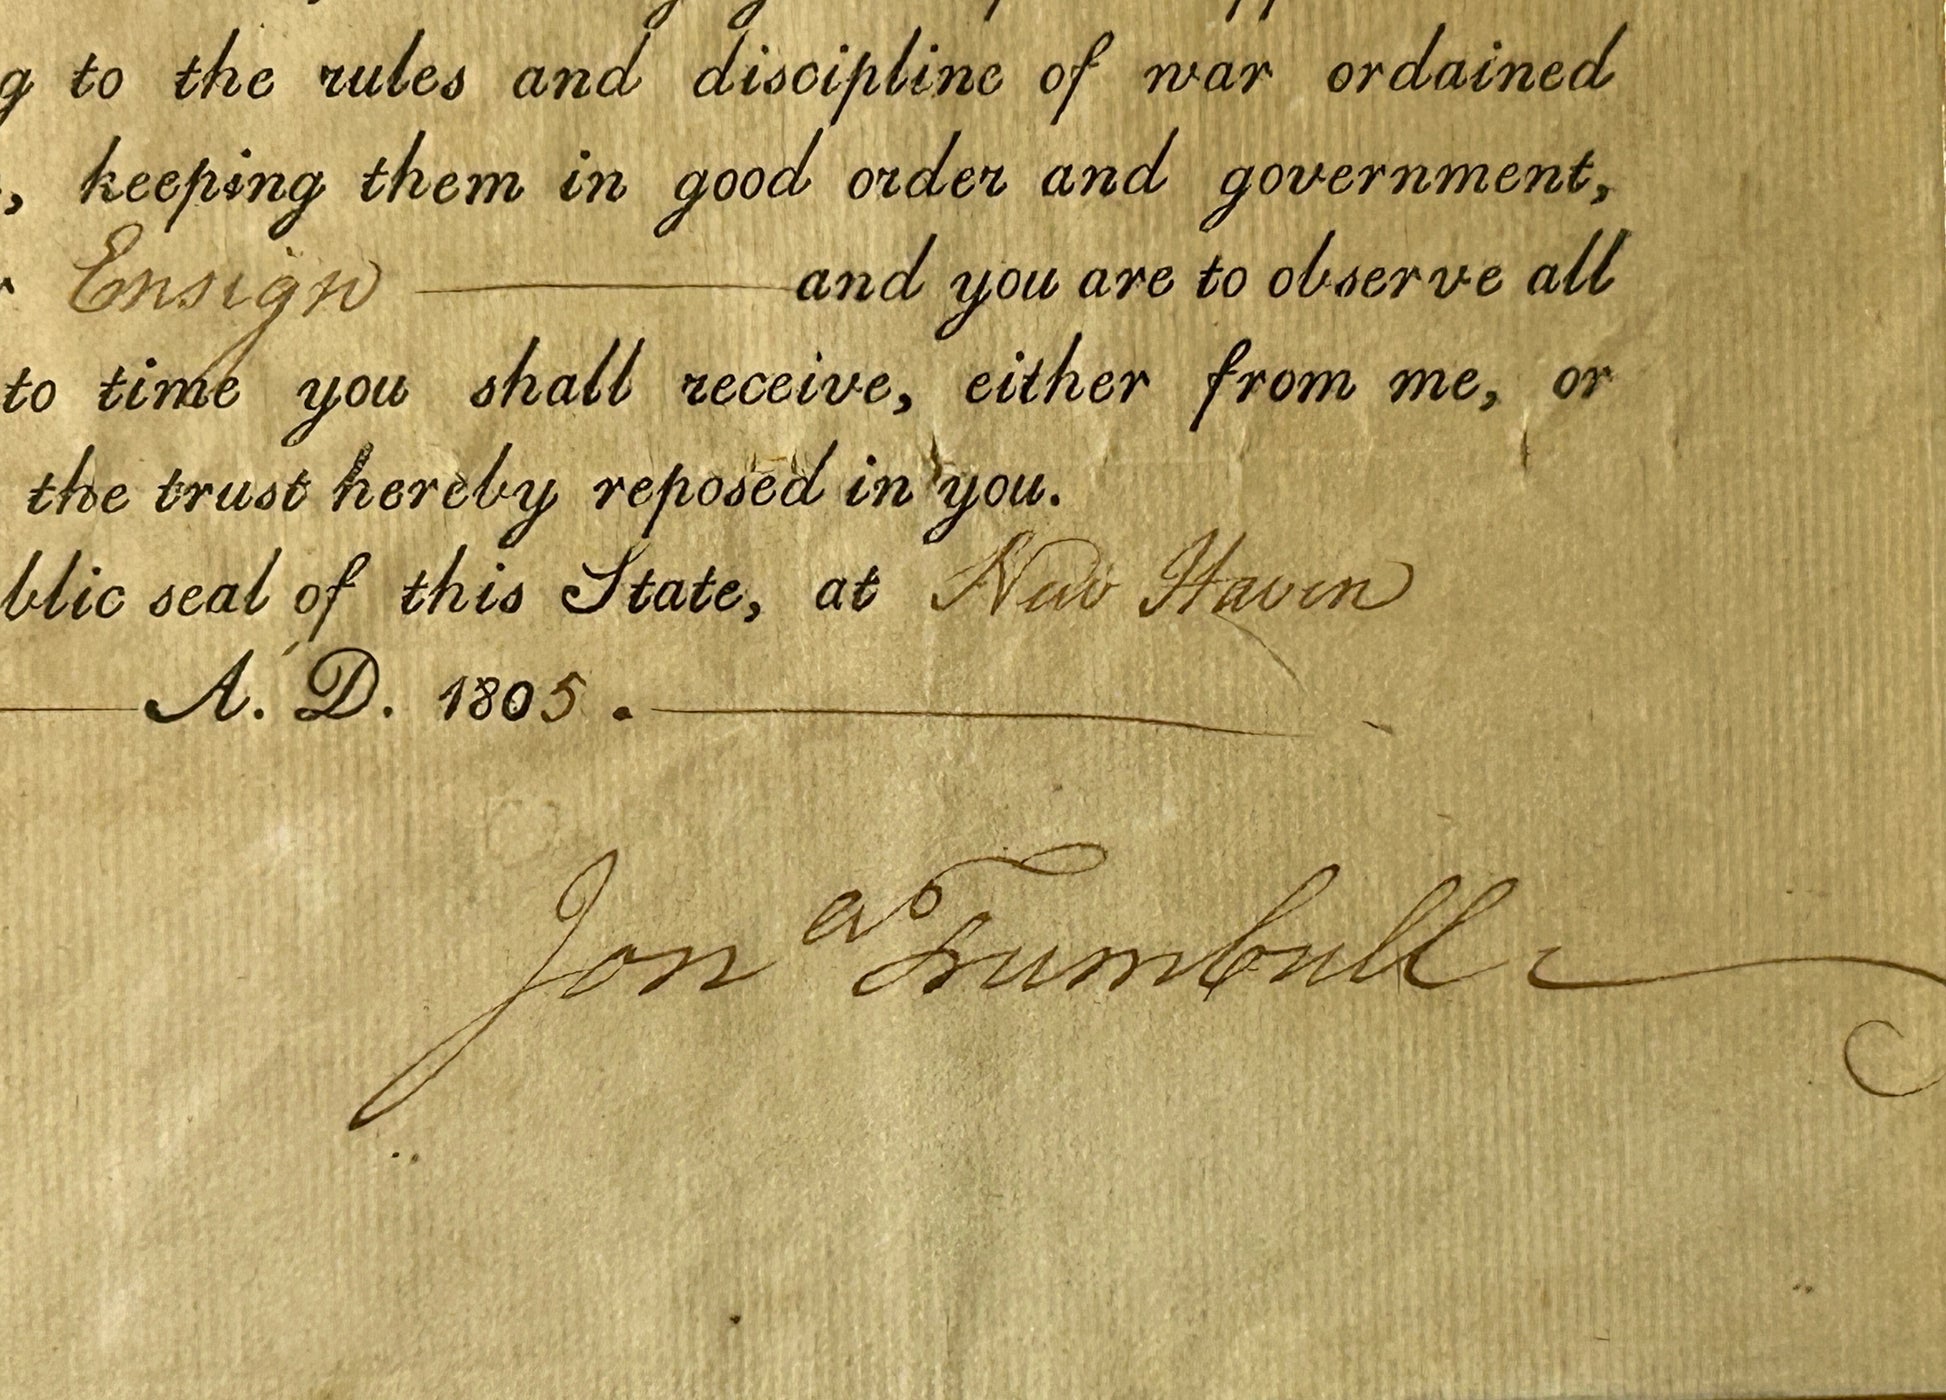 g to the rules and discipline of war ordained
, keeping them in good order and government,
r Ensign and you are to observe all
to time you shall receive, either from me, or
the trust hereby reposed in you.
blic seal of this State, at New Haven
A. D. 1805.
Jonᵃ Trumbull